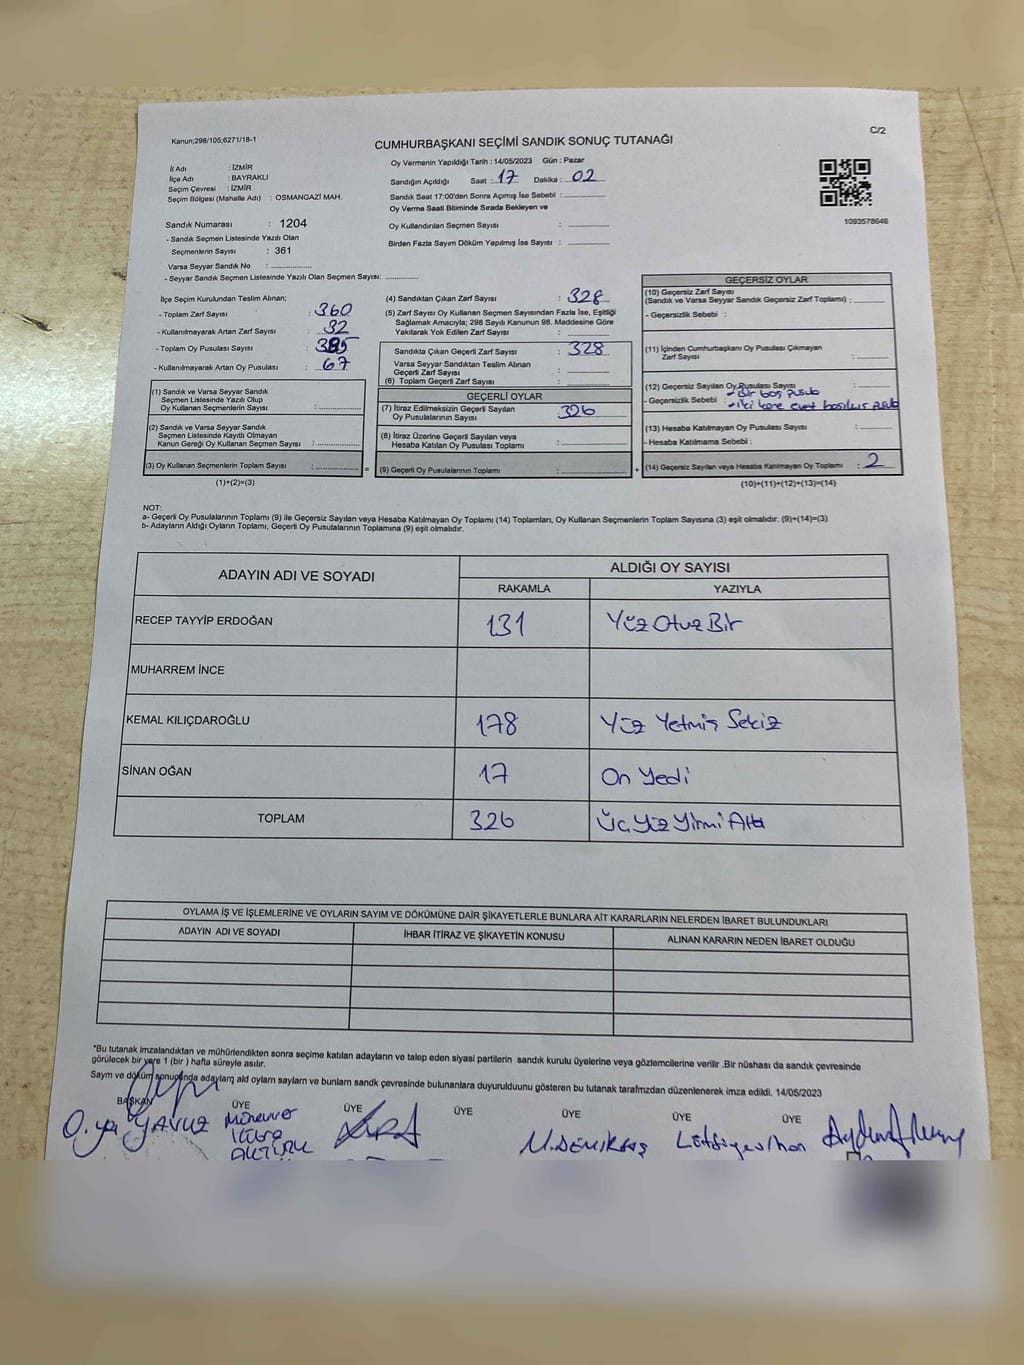 Kanun;298/105;6271/18-1
C/2
CUMHURBAŞKANI SEÇİMİ SANDIK SONUÇ TUTANAĞI
İl Adı : İZMİR
İlçe Adı : BAYRAKLI
Seçim Çevresi : İZMİR
Seçim Bölgesi (Mahalle Adı) : OSMANGAZİ MAH.
Sandık Numarası : 1204
- Sandık Seçmen Listesinde Yazılı Olan
Seçmenlerin Sayısı : 361
Varsa Seyyar Sandık No : ..............
- Seyyar Sandık Seçmen Listesinde Yazılı Olan Seçmen Sayısı: ..............
Oy Vermenin Yapıldığı Tarih : 14/05/2023 Gün : Pazar
Sandığın Açıldığı Saat : 17 Dakika : 02
Sandık Saat 17:00'den Sonra Açımış İse Sebebi : ..............
Oy Verme Saati Bitiminde Sırada Bekleyen ve
Oy Kullandırılan Seçmen Sayısı : ..............
Birden Fazla Sayım Döküm Yapılmış İse Sayısı : ..............
1093578646
İlçe Seçim Kurulundan Teslim Alınan;
- Toplam Zarf Sayısı : 360
- Kullanılmayarak Artan Zarf Sayısı : 32
- Toplam Oy Pusulası Sayısı :
- Kullanılmayarak Artan Oy Pusulası : 67
(1) Sandık ve Varsa Seyyar Sandık
Seçmen Listesinde Yazılı Olup
Oy Kullanan Seçmenlerin Sayısı : ..............
(2) Sandık ve Varsa Seyyar Sandık
Seçmen Listesinde Kayıtlı Olmayan
Kanun Gereği Oy Kullanan Seçmen Sayısı : ..............
(3) Oy Kullanan Seçmenlerin Toplam Sayısı : .............. =
(1)+(2)=(3)
(4) Sandıktan Çıkan Zarf Sayısı : 328
(5) Zarf Sayısı Oy Kullanan Seçmen Sayısından Fazla İse, Eşitliği
Sağlamak Amacıyla; 298 Sayılı Kanunun 98. Maddesine Göre
Yakılarak Yok Edilen Zarf Sayısı : ..............
Sandıkta Çıkan Geçerli Zarf Sayısı : 328
Varsa Seyyar Sandıktan Teslim Alınan
Geçerli Zarf Sayısı : ..............
(6) Toplam Geçerli Zarf Sayısı : ..............
GEÇERLİ OYLAR
(7) İtiraz Edilmeksizin Geçerli Sayılan
Oy Pusulalarının Sayısı : 326
(8) İtiraz Üzerine Geçerli Sayılan veya
Hesaba Katılan Oy Pusulaları Toplamı : ..............
(9) Geçerli Oy Pusulalarının Toplamı : .............. +
GEÇERSİZ OYLAR
(10) Geçersiz Zarf Sayısı
(Sandık ve Varsa Seyyar Sandık Geçersiz Zarf Toplamı) : ..............
- Geçersizlik Sebebi :
(11) İçinden Cumhurbaşkanı Oy Pusulası Çıkmayan
Zarf Sayısı : ..............
(12) Geçersiz Sayılan Oy Pusulası Sayısı : ..............
- Geçersizlik Sebebi : - Bir boş pusula
- iki kere evet basılmış pusula
(13) Hesaba Katılmayan Oy Pusulası Sayısı : ..............
- Hesaba Katılmama Sebebi :
(14) Geçersiz Sayılan veya Hesaba Katılmayan Oy Toplamı : 2
(10)+(11)+(12)+(13)=(14)
NOT:
a- Geçerli Oy Pusulalarının Toplamı (9) ile Geçersiz Sayılan veya Hesaba Katılmayan Oy Toplamı (14) Toplamları, Oy Kullanan Seçmenlerin Toplam Sayısına (3) eşit olmalıdır. (9)+(14)=(3)
b- Adayların Aldığı Oyların Toplamı, Geçerli Oy Pusulalarının Toplamına (9) eşit olmalıdır.
ADAYIN ADI VE SOYADI ALDIĞI OY SAYISI
RAKAMLA YAZIYLA
RECEP TAYYİP ERDOĞAN 131 Yüz Otuz Bir
MUHARREM İNCE
KEMAL KILIÇDAROĞLU 178 Yüz Yetmiş Sekiz
SİNAN OĞAN 17 On Yedi
TOPLAM 326 Üç Yüz Yirmi Altı
OYLAMA İŞ VE İŞLEMLERİNE VE OYLARIN SAYIM VE DÖKÜMÜNE DAİR ŞİKAYETLERLE BUNLARA AİT KARARLARIN NELERDEN İBARET BULUNDUKLARI
ADAYIN ADI VE SOYADI İHBAR İTİRAZ VE ŞİKAYETİN KONUSU ALINAN KARARIN NEDEN İBARET OLDUĞU
*Bu tutanak imzalandıktan ve mühürlendikten sonra seçime katılan adayların ve talep eden siyasi partilerin sandık kurulu üyelerine veya gözlemcilerine verilir .Bir nüshası da sandık çevresinde
görülecek bir yere 1 (bir ) hafta süreyle asılır.
Sayım ve döküm sonuçunda adayların ald oyların sayıları ve bunların sandk çevresinde bulunanlara duyurulduunu gösteren bu tutanak tarafmzdan düzenlenerek imza edildi. 14/05/2023
BAŞKAN ÜYE ÜYE ÜYE ÜYE ÜYE ÜYE
YAVUZ Münevver Kübra AKTÜRK M.DEMİRTAŞ